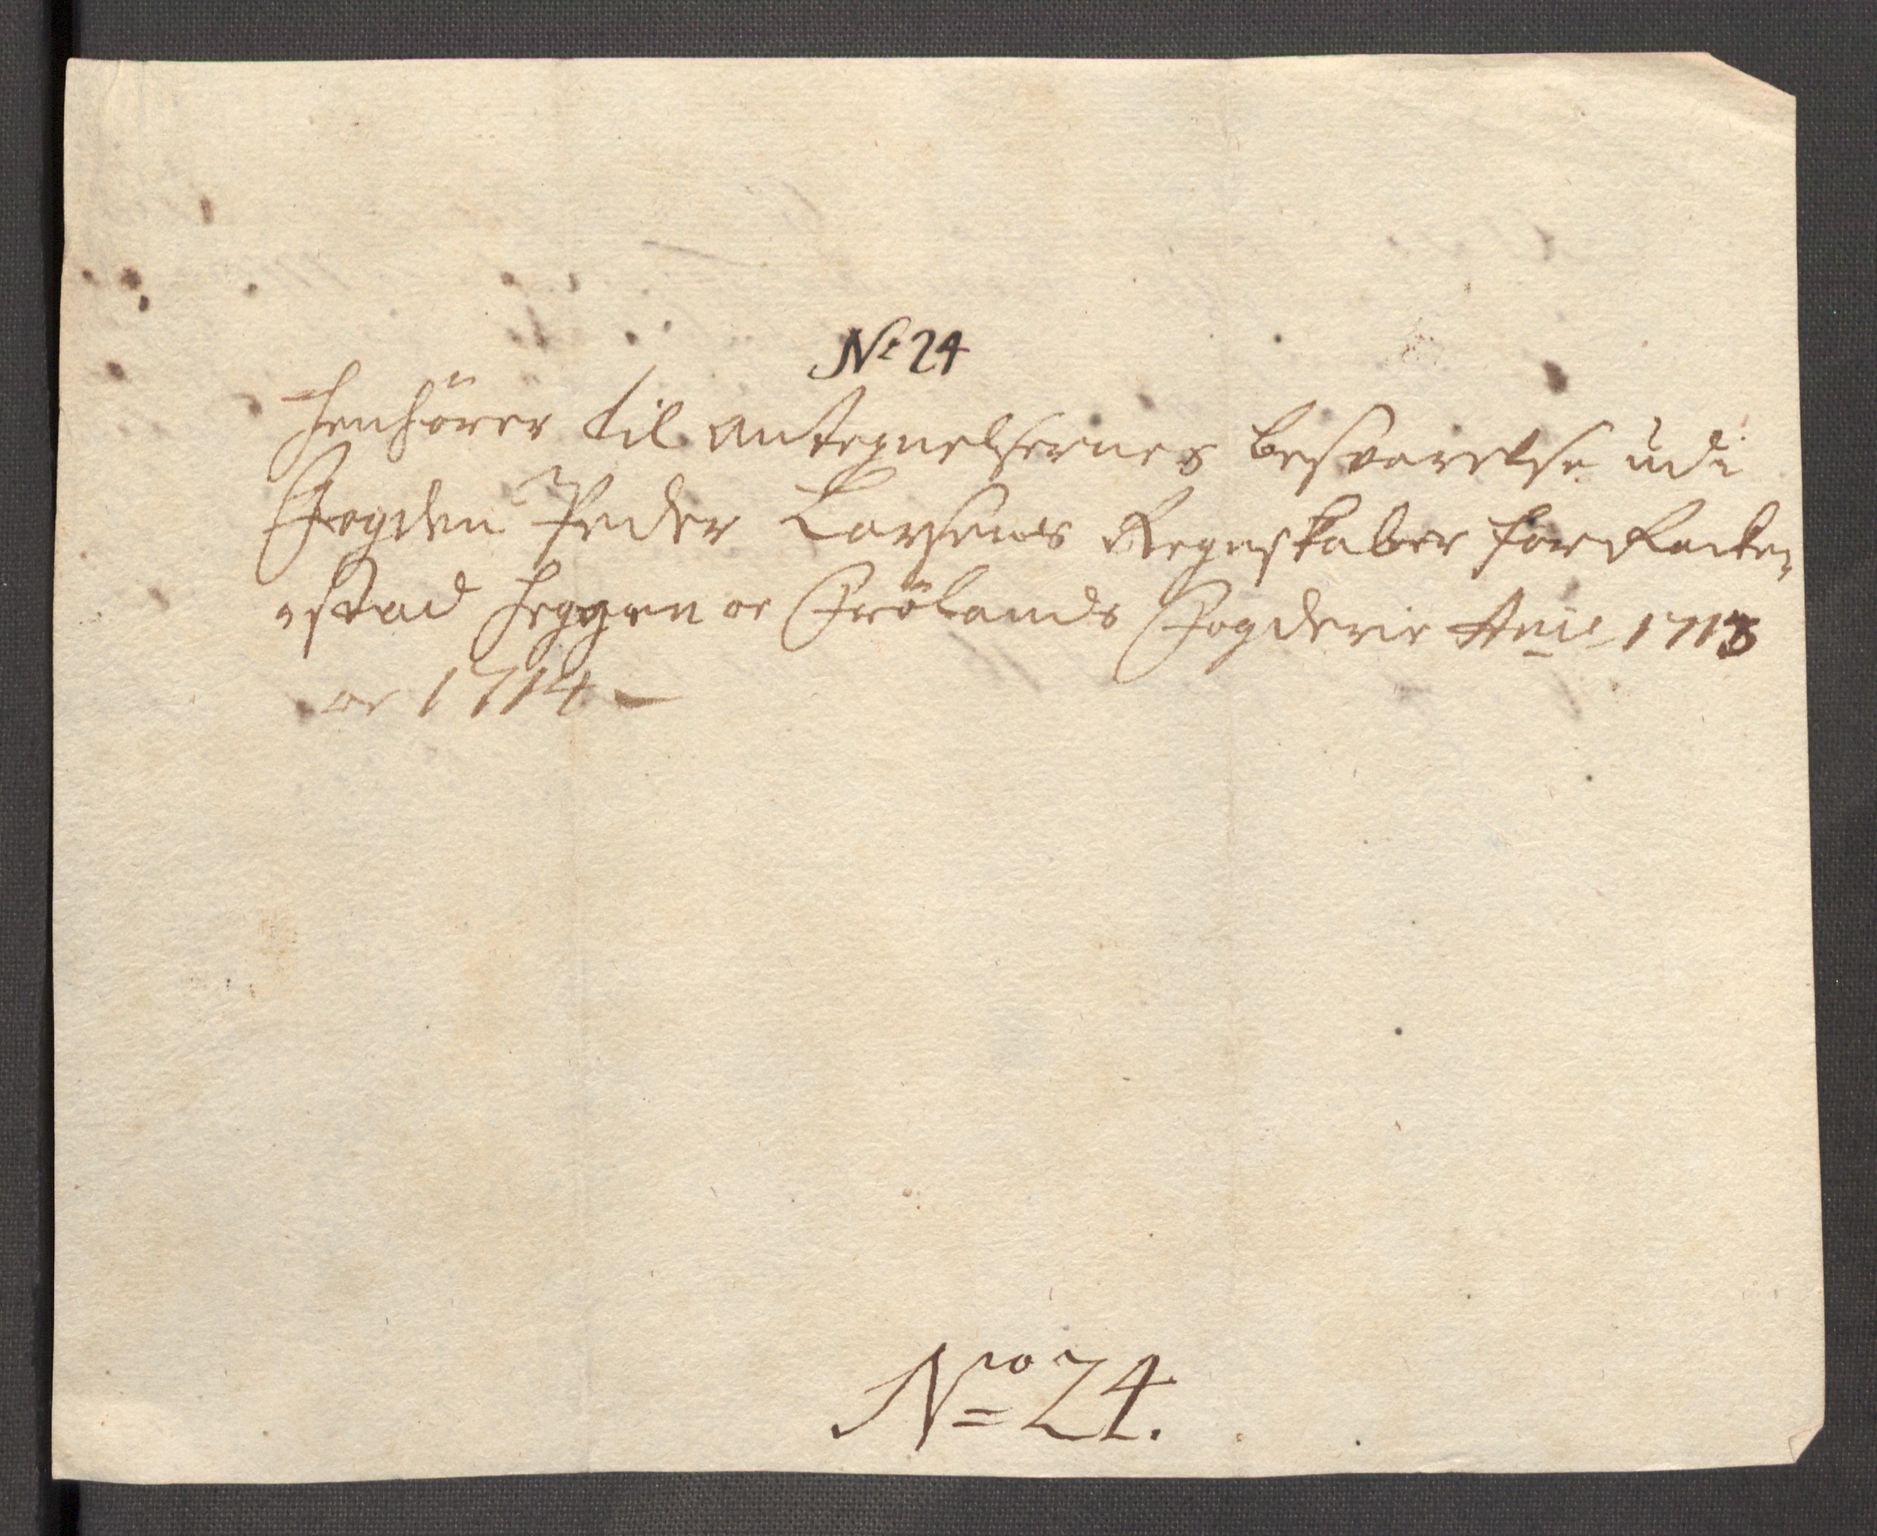 No 24
henhörer til antegnelsernes besvarelse udi
Fogden Peder Larsens Regnskaber for Racke-
-stad Heggen oc Frölands Fogderie Anis 1713
oc 1714 -
No 24.